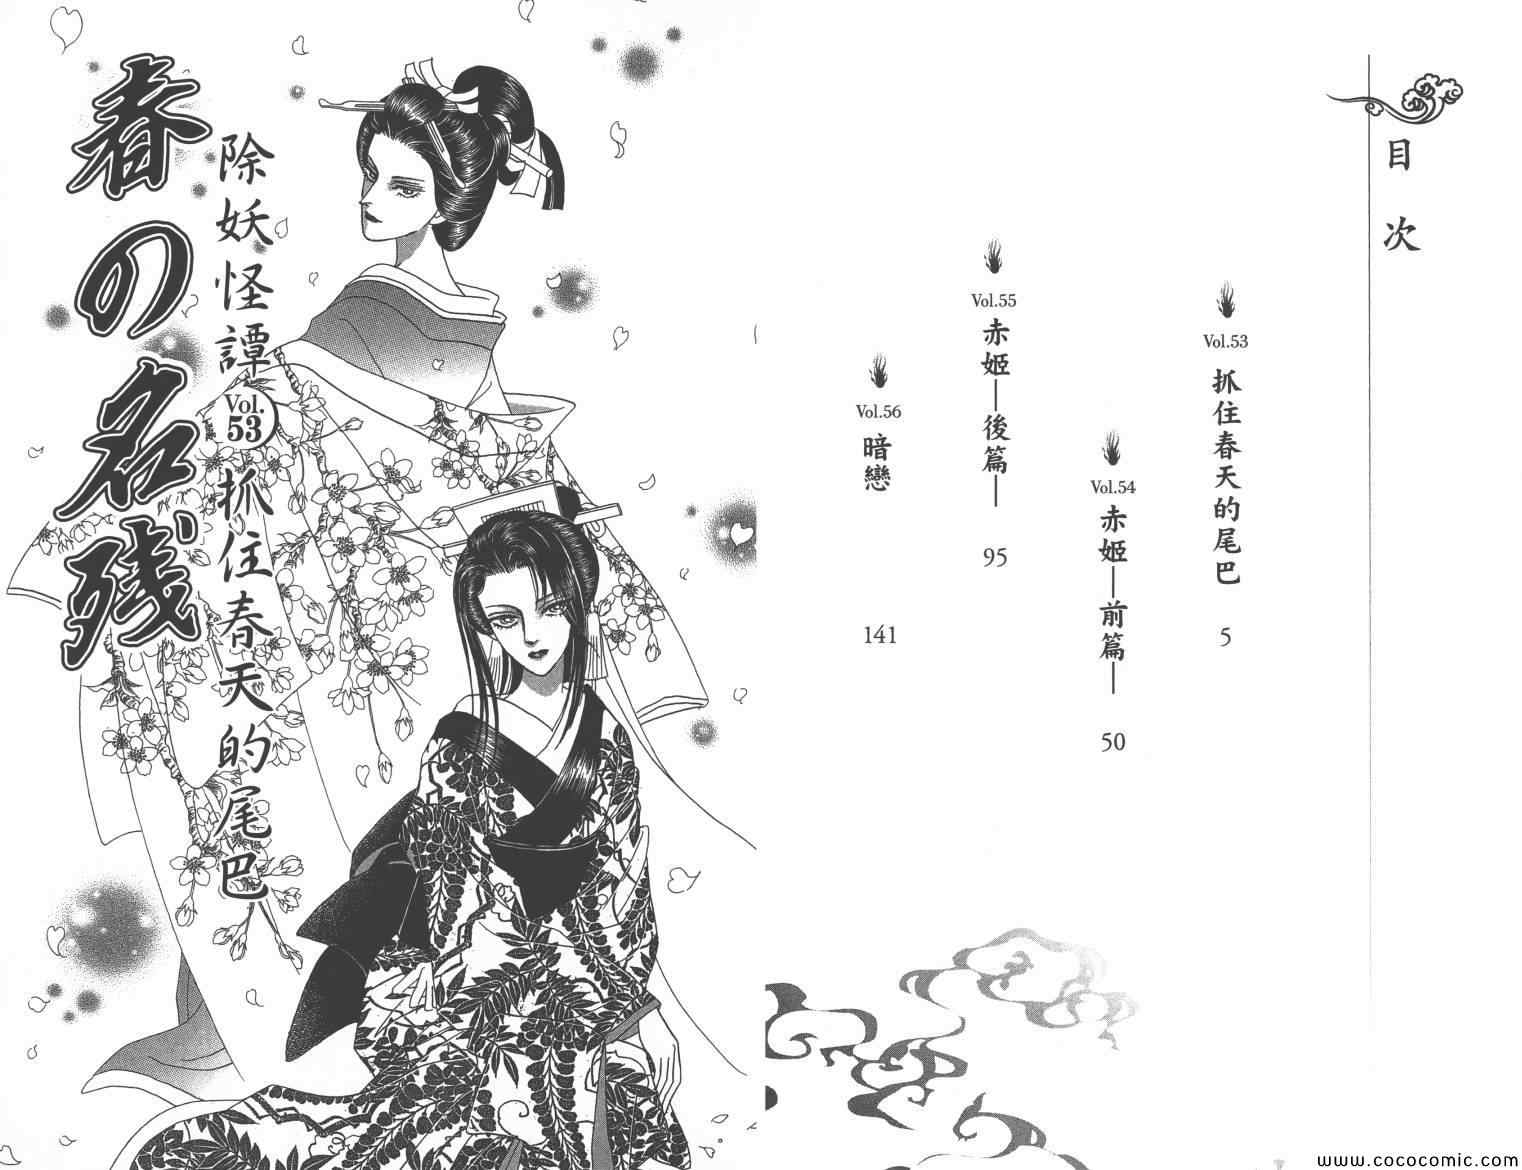 目次
Vol.53
抓住春天的尾巴
5
Vol.54
赤姬—前篇—
50
Vol.55
赤姬—後篇—
95
Vol.56
暗戀
141
除妖怪譚 Vol.53 抓住春天的尾巴
春の名残
www.cococomic.com